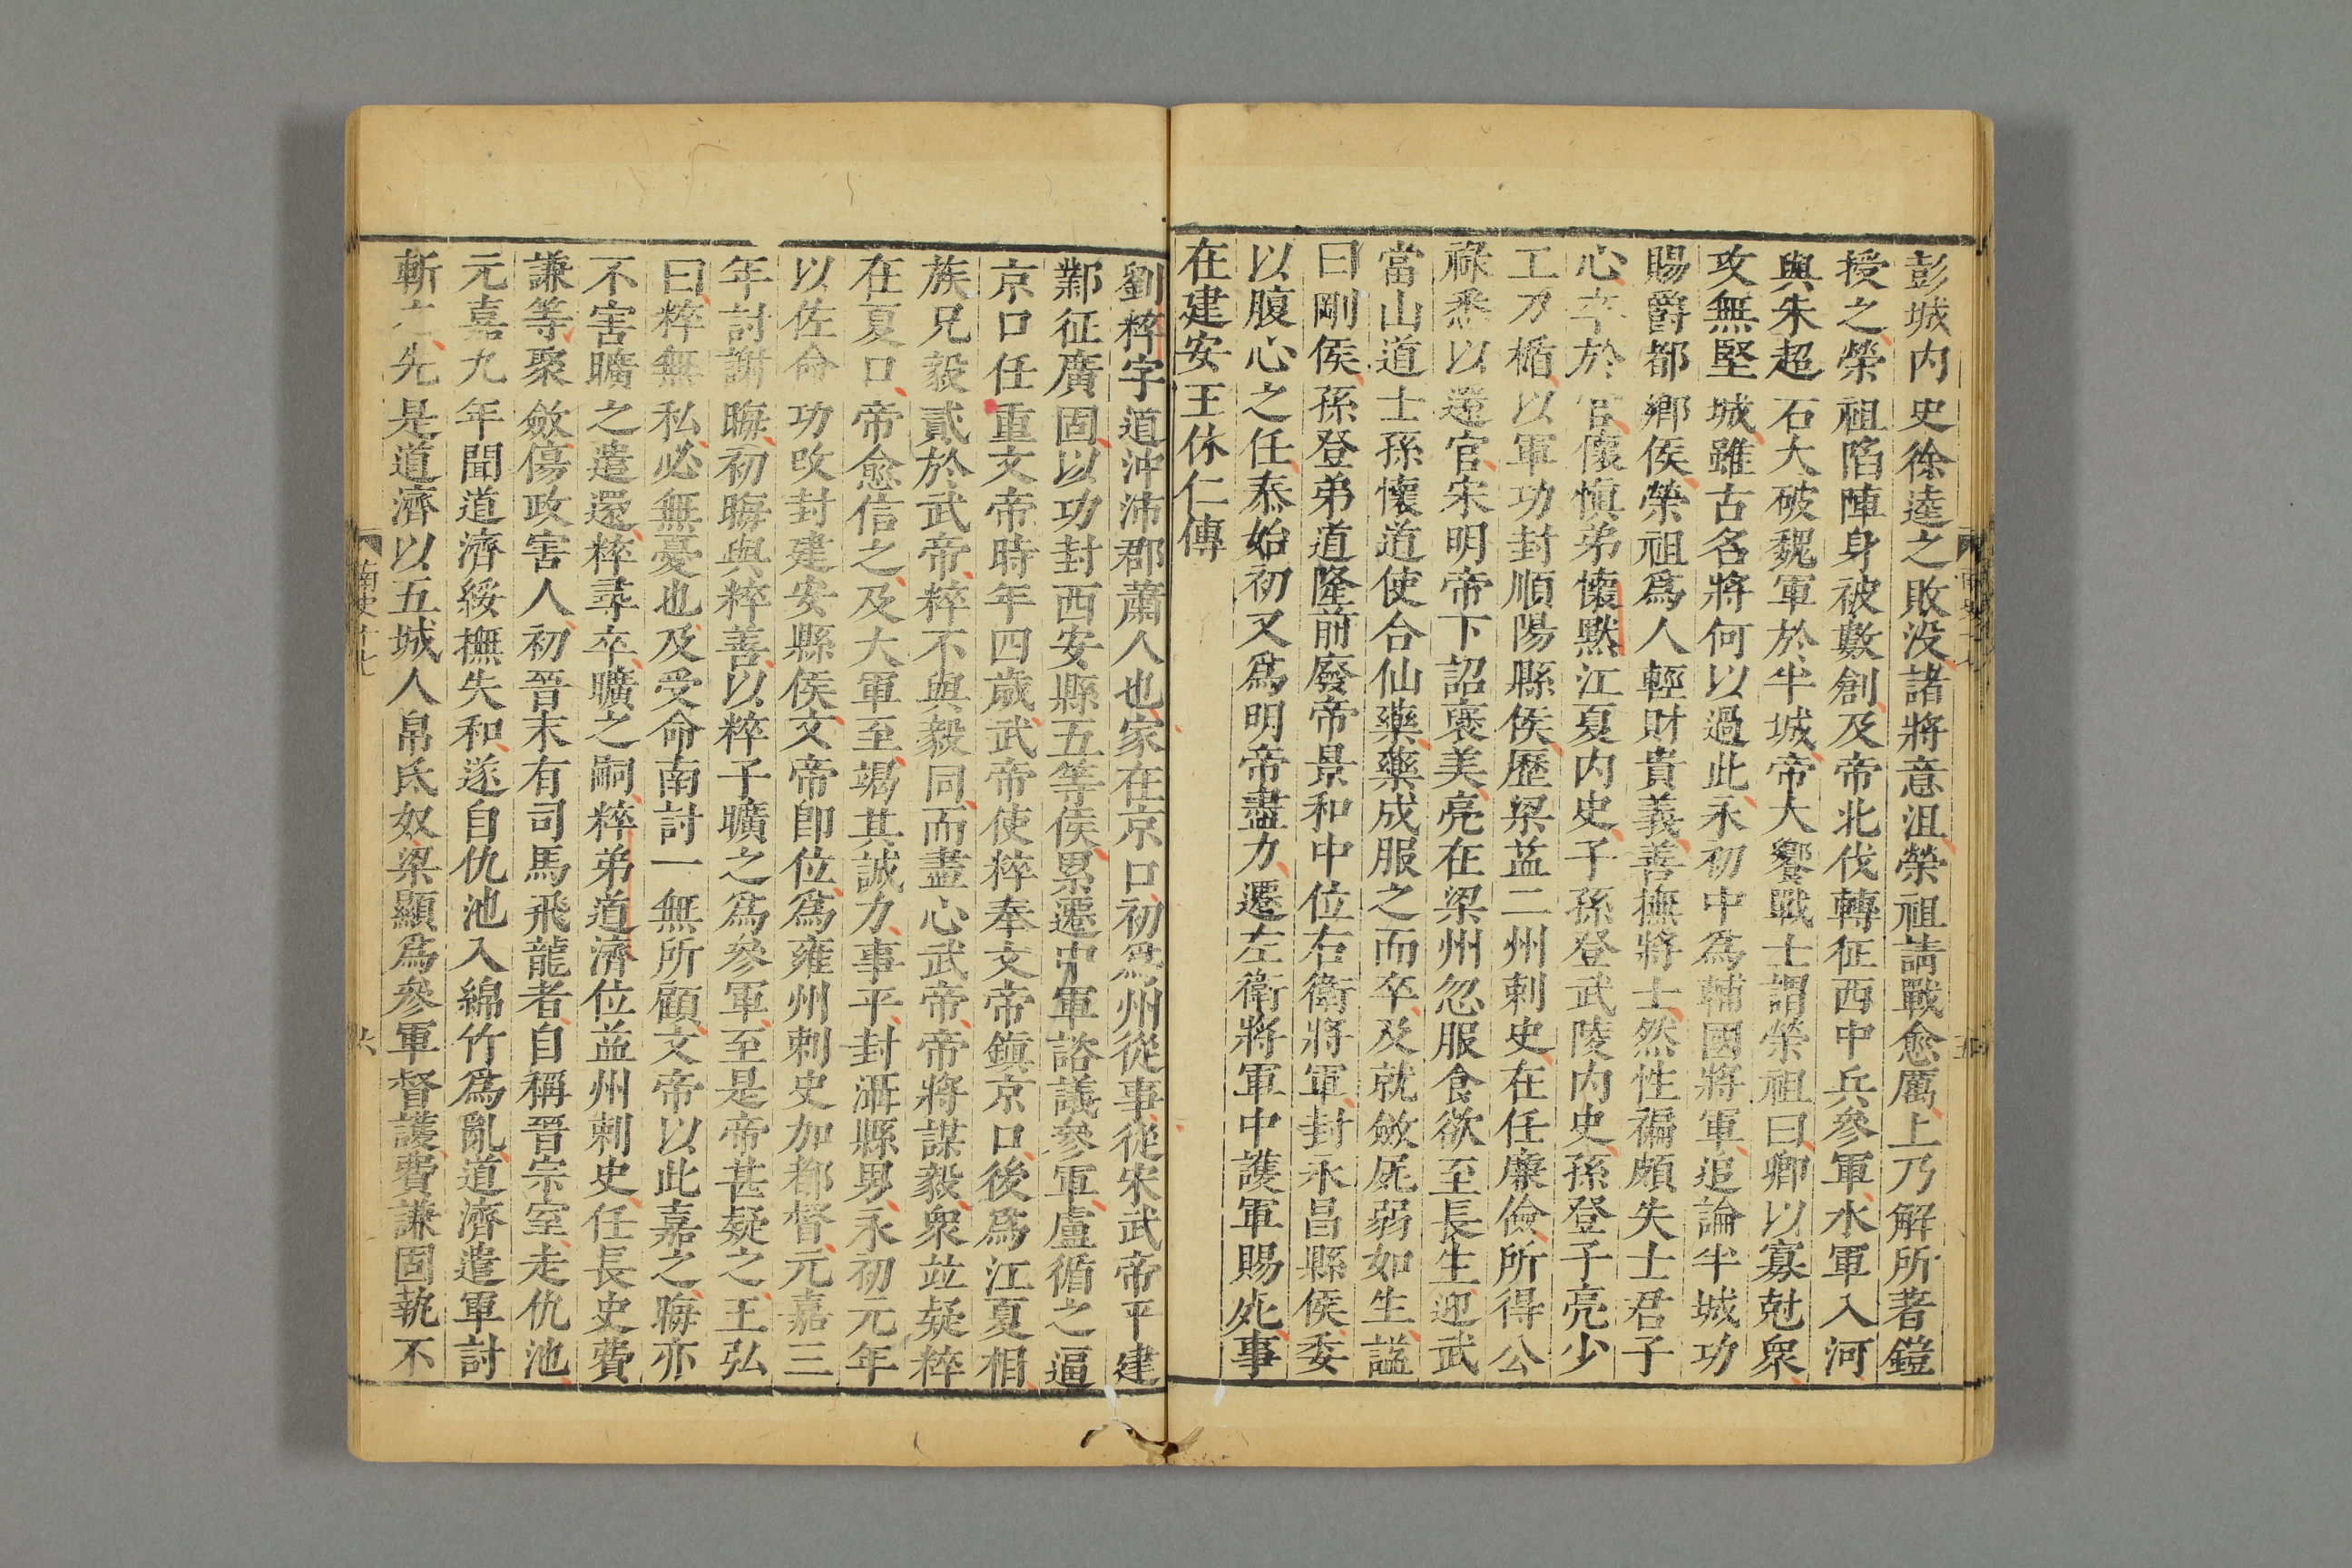 彭城内史徐逵之敗没諸將意沮榮祖請戰愈厲上乃解所著鎧
授之榮祖陷陣身被數創及帝北伐轉征西中兵參軍水軍入河
與朱超石大破魏軍於半城帝大饗戰士謂榮祖曰卿以寡尅衆
攻無堅城雖古名將何以過此永初中爲輔國將軍追論半城功
賜爵都鄉侯榮祖爲人輕財貴義善撫將士然性褊頗失士君子
心卒於官懷愼弟懷默江夏内史子孫登武陵内史孫登子亮少
工刀楯以軍功封順陽縣侯歷梁益二州刺史在任廉儉所得公
祿悉以還官宋明帝下詔襃美亮在梁州忽服食欲至長生迎武
當山道士孫懷道使合仙藥藥成服之而卒及就斂屍弱如生謚
曰剛侯孫登弟道隆前廢帝景和中位右衛將軍封永昌縣侯委
以腹心之任泰始初又爲明帝盡力遷左衛將軍中護軍賜死事
在建安王休仁傳
劉粹字道沖沛郡蕭人也家在京口初爲州從事從宋武帝平建
鄴征廣固以功封西安縣五等侯累遷中軍諮議參軍盧循之逼
京口任重文帝時年四歲武帝使粹奉文帝鎭京口後爲江夏相
族兄毅貳於武帝粹不與毅同而盡心武帝帝將謀毅衆竝疑粹
在夏口帝愈信之及大軍至竭其誠力事平封灄縣男永初元年
以佐命功攺封建安縣侯文帝即位爲雍州刺史加都督元嘉三
年討謝晦初晦與粹善以粹子曠之爲參軍至是帝甚疑之王弘
曰粹無私必無憂也及受命南討一無所顧文帝以此嘉之晦亦
不害曠之遣還粹尋卒曠之嗣粹弟道濟位益州刺史任長史費
謙等聚斂傷政害人初晉末有司馬飛龍者自稱晉宗室走仇池
元嘉九年聞道濟綏撫失和遂自仇池入綿竹爲亂道濟遣軍討
斬之先是道濟以五城人帛氐奴梁顯爲參軍督護費謙固執不
南史十七
六